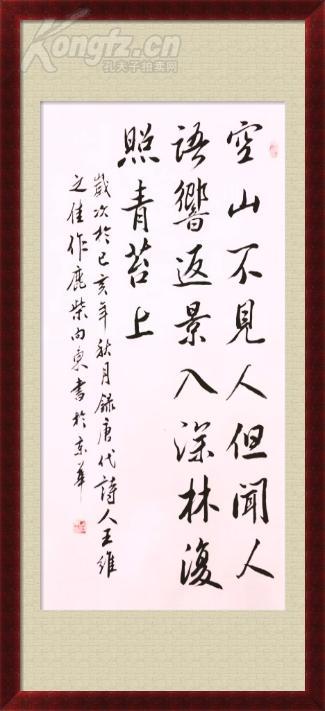 Kongfz.cn
孔夫子拍卖网
空山不見人但聞人
語響返景入深林復
照青苔上
歲次於己亥年秋月録唐代詩人王維
之佳作鹿柴向東書於京華